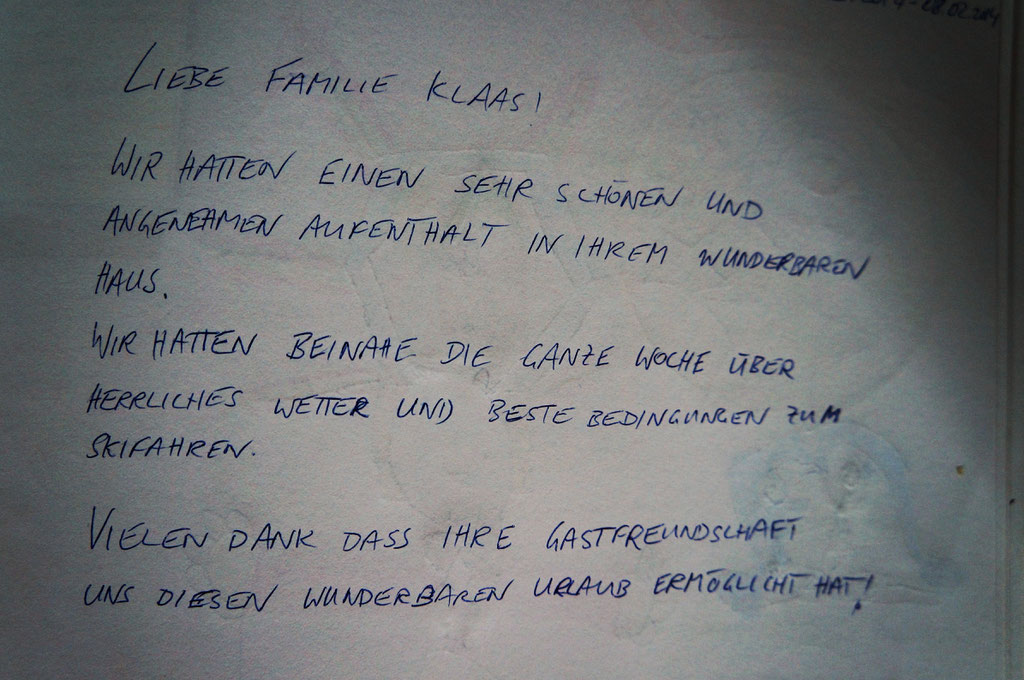 08.02.2014
LIEBE FAMILIE KLAAS!
WIR HATTEN EINEN SEHR SCHÖNEN UND
ANGENEHMEN AUFENTHALT IN IHREM WUNDERBAREN
HAUS.
WIR HATTEN BEINAHE DIE GANZE WOCHE ÜBER
HERRLICHES WETTER UND BESTE BEDINGUNGEN ZUM
SKIFAHREN.
VIELEN DANK DASS IHRE GASTFREUNDSCHAFT
UNS DIESEN WUNDERBAREN URLAUB ERMÖGLICHT HAT!